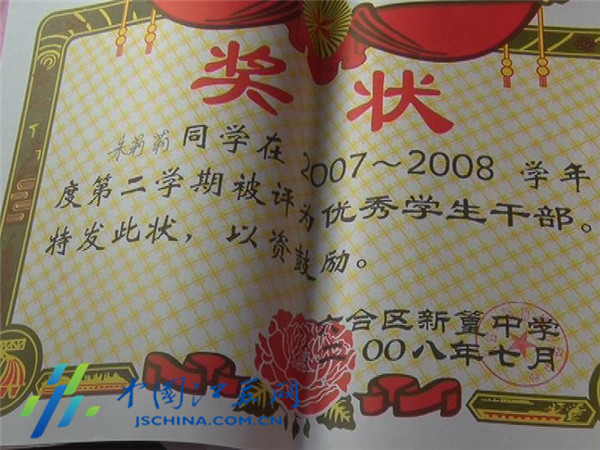 奖状
朱莉莉同学在2007～2008学年
度第二学期被评为优秀学生干部。
特发此状，以资鼓励。
六合区新篁中学
二00八年七月
中国江苏网
JSCHINA.COM.CN